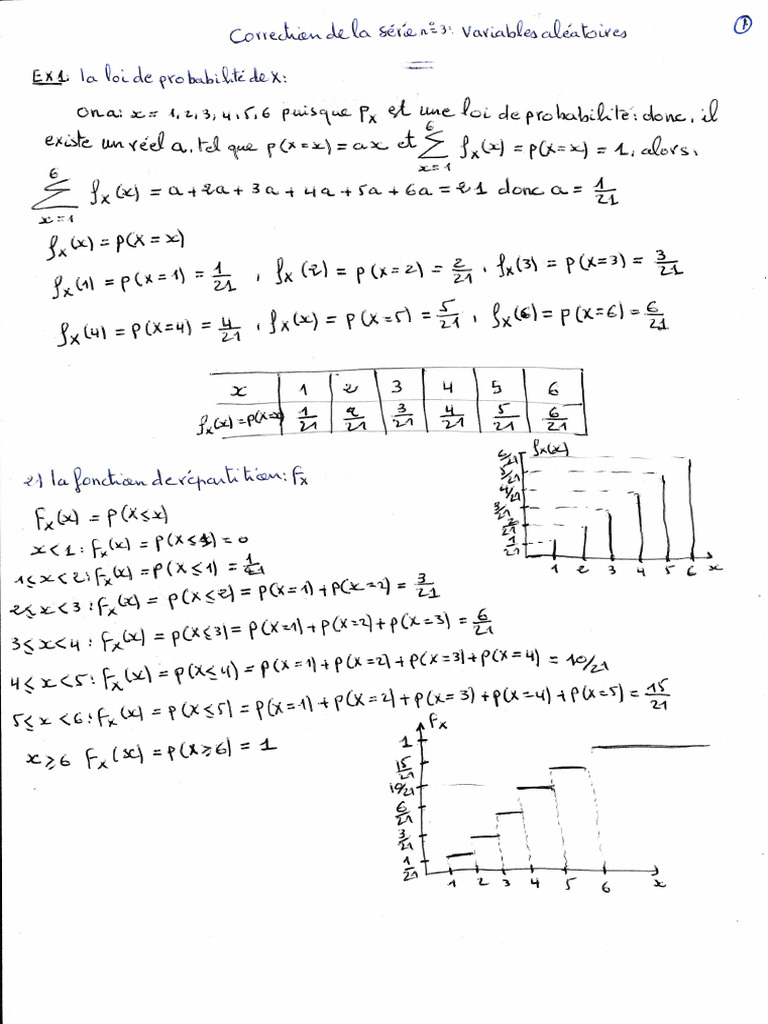 Correction de la série n°3: Variables aléatoires
1
Ex1: la loi de probabilité de X:
On a: x = 1, 2, 3, 4, 5, 6 puisque Px est une loi de probabilité: donc, il
existe un réel a, tel que p(X=x) = ax et ∑_{x=1}^{6} fx(x) = p(X=x) = 1, alors,
∑_{x=1}^{6} fx(x) = a + 2a + 3a + 4a + 5a + 6a = 21 donc a = 1/21
fx(x) = p(X = x)
fx(1) = p(X=1) = 1/21 , fx(2) = p(X=2) = 2/21 , fx(3) = p(X=3) = 3/21
fx(4) = p(X=4) = 4/21 , fx(x) = p(X=5) = 5/21 , fx(6) = p(X=6) = 6/21
x 1 2 3 4 5 6
fx(x) = p(X=x) 1/21 2/21 3/21 4/21 5/21 6/21
fx(x)
6/21
5/21
4/21
3/21
2/21
1/21
1 2 3 4 5 6 x
2) la fonction de répartition: Fx
Fx(x) = p(X≤x)
x < 1 : Fx(x) = p(X≤1) = 0
1≤x<2: Fx(x) = p(X≤1) = 1/21
2≤x<3 : Fx(x) = p(X≤2) = p(X=1) + p(X=2) = 3/21
3≤x<4 : Fx(x) = p(X≤3) = p(X=1) + p(X=2) + p(X=3) = 6/21
4≤x<5 : Fx(x) = p(X≤4) = p(X=1) + p(X=2) + p(X=3) + p(X=4) = 10/21
5≤x<6 : Fx(x) = p(X≤5) = p(X=1) + p(X=2) + p(X=3) + p(X=4) + p(X=5) = 15/21
x≥6 Fx(x) = p(X≥6) = 1
Fx
1
15/21
10/21
6/21
3/21
1/21
1 2 3 4 5 6 x